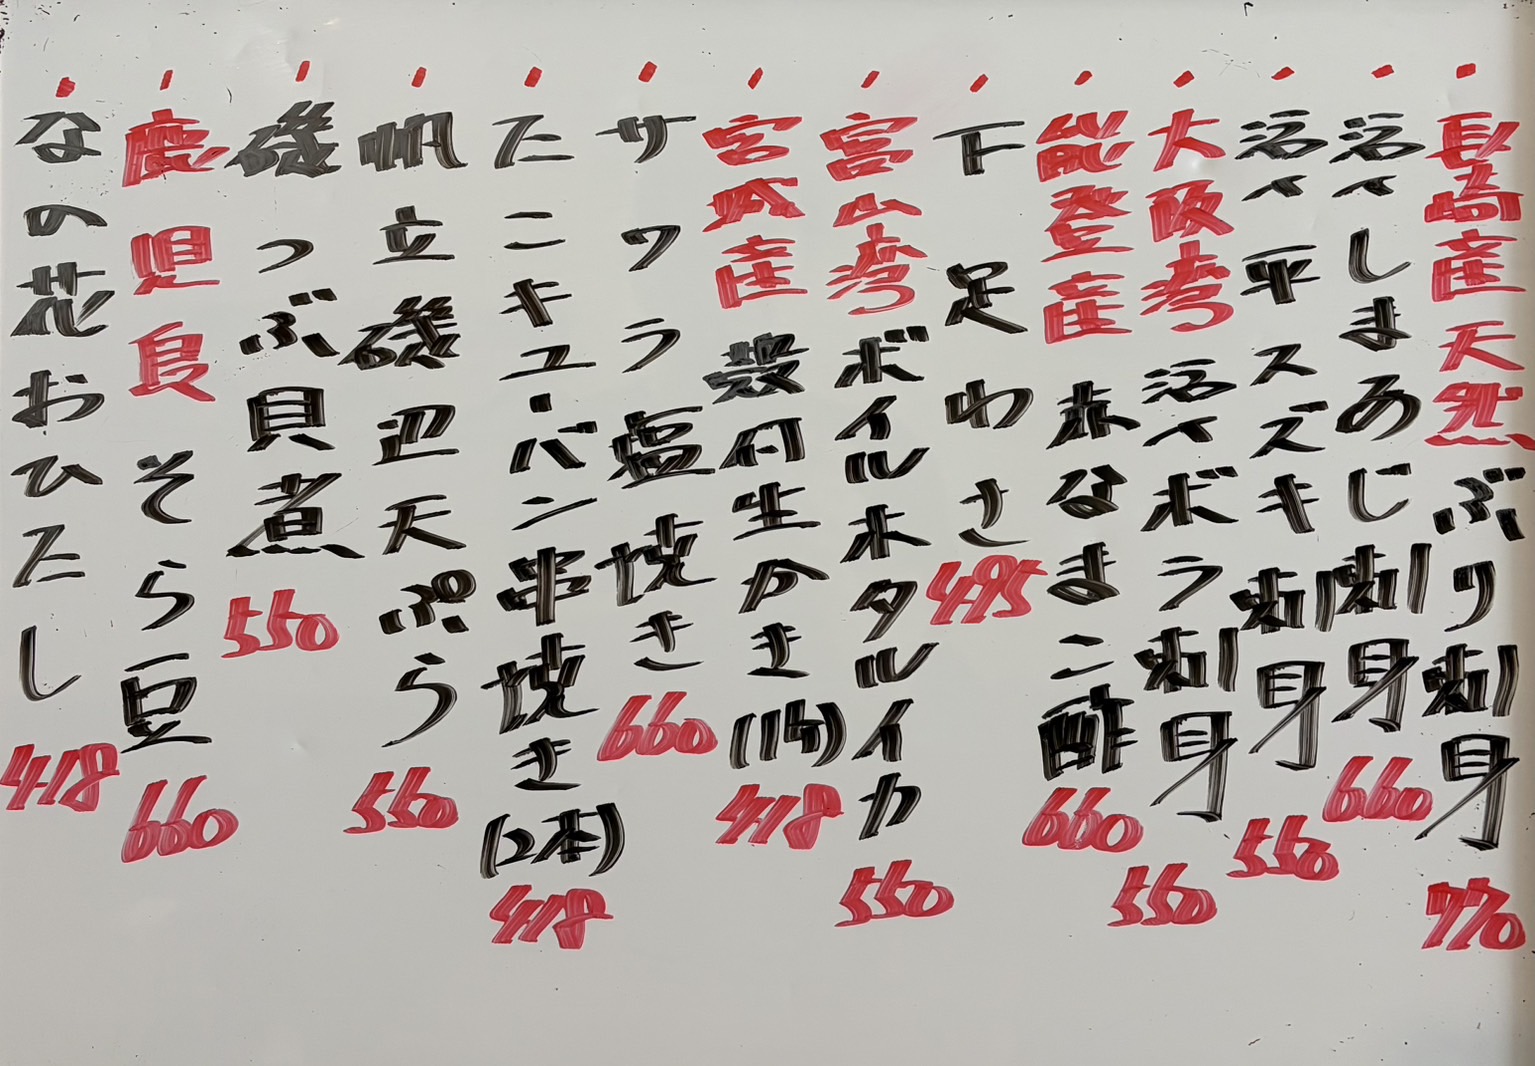 長崎産天然ぶり刺身 770
活〆しまあじ刺身 660
活〆平スズキ刺身 550
大阪湾活〆ボラ刺身 550
能登産赤なまこ酢 660
下足わさ 495
富山湾ボイルホタルイカ 550
宮城産殻付生かき(1ケ) 418
サワラ塩焼き 660
たこキユーバン串焼き(2本) 418
帆立磯辺天ぷら 550
磯つぶ貝煮 550
鹿児島そら豆 660
なの花おひたし 418